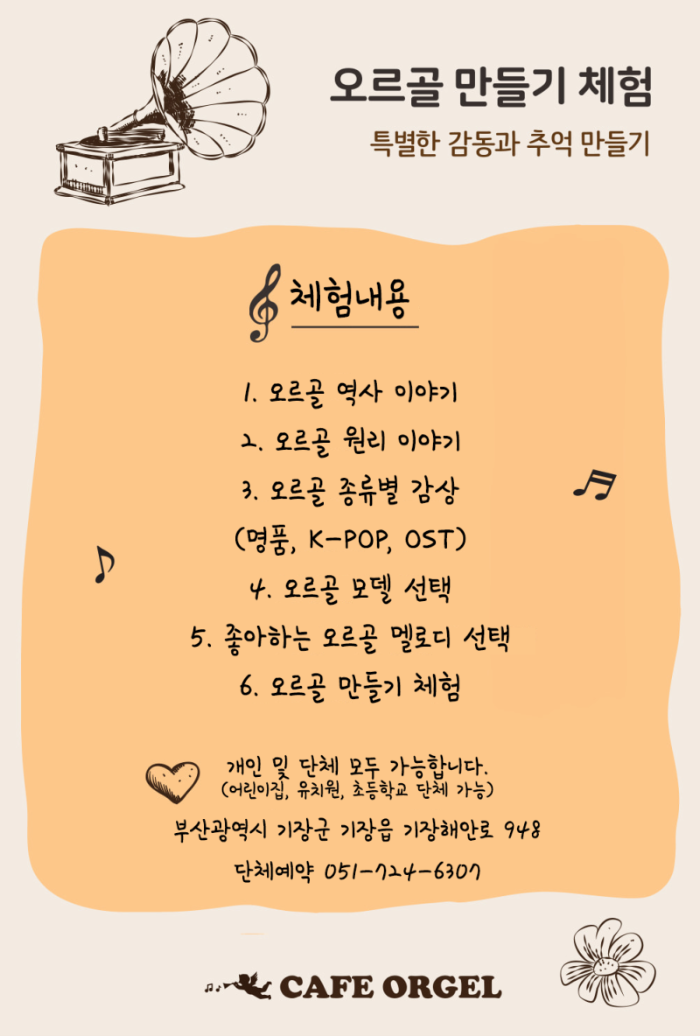 오르골 만들기 체험
특별한 감동과 추억 만들기
체험내용
1. 오르골 역사 이야기
2. 오르골 원리 이야기
3. 오르골 종류별 감상
(명품, K-POP, OST)
4. 오르골 모델 선택
5. 좋아하는 오르골 멜로디 선택
6. 오르골 만들기 체험
개인 및 단체 모두 가능합니다.
(어린이집, 유치원, 초등학교 단체 가능)
부산광역시 기장군 기장읍 기장해안로 948
단체예약 051-724-6307
CAFE ORGEL